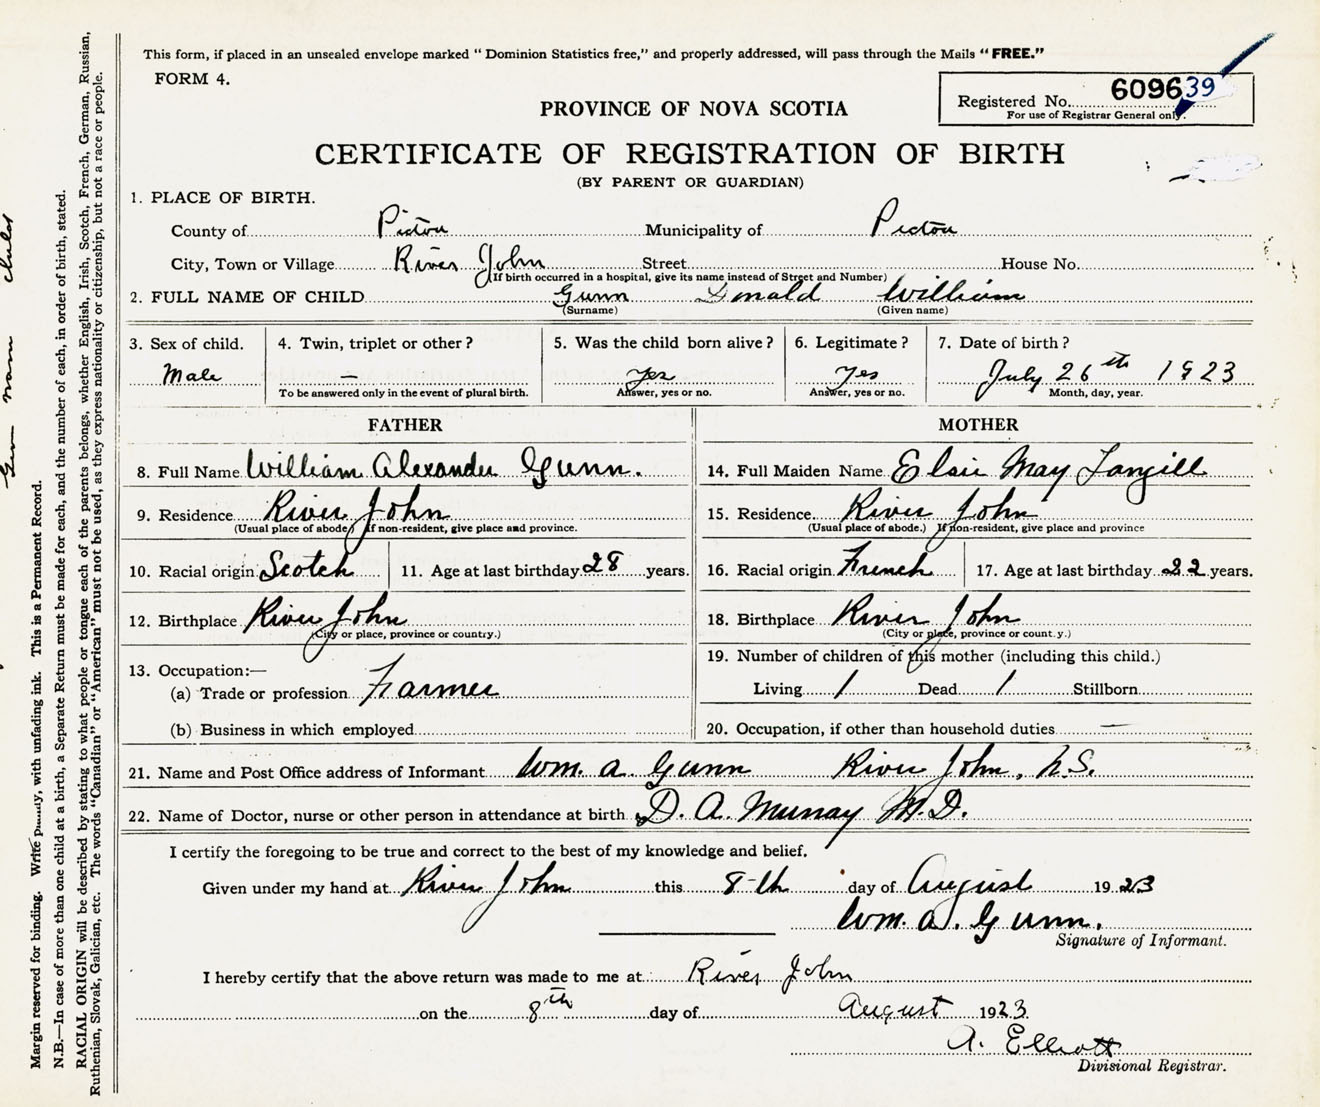 This form, if placed in an unsealed envelope marked "Dominion Statistics free," and properly addressed, will pass through the Mails "FREE."
FORM 4.
Registered No. 609639
For use of Registrar General only.
PROVINCE OF NOVA SCOTIA
CERTIFICATE OF REGISTRATION OF BIRTH
(BY PARENT OR GUARDIAN)
1. PLACE OF BIRTH.
County of Pictou Municipality of Pictou
City, Town or Village River John Street House No.
(If birth occurred in a hospital, give its name instead of Street and Number)
2. FULL NAME OF CHILD Gunn Donald William
(Surname) (Given name)
3. Sex of child. 4. Twin, triplet or other? 5. Was the child born alive? 6. Legitimate? 7. Date of birth?
Male — Yes Yes July 26th 1923
To be answered only in the event of plural birth. Answer, yes or no. Answer, yes or no. Month, day, year.
FATHER MOTHER
8. Full Name William Alexander Gunn. 14. Full Maiden Name Elsie May Langill
9. Residence River John 15. Residence River John
(Usual place of abode) If non-resident, give place and province. (Usual place of abode.) If non-resident, give place and province
10. Racial origin Scotch 11. Age at last birthday 28 years. 16. Racial origin French 17. Age at last birthday 22 years.
12. Birthplace River John 18. Birthplace River John
(City or place, province or country.) (City or place, province or count.y.)
13. Occupation:— 19. Number of children of this mother (including this child.)
(a) Trade or profession Farmer Living 1 Dead 1 Stillborn
(b) Business in which employed 20. Occupation, if other than household duties —
21. Name and Post Office address of Informant Wm. A. Gunn River John, N.S.
22. Name of Doctor, nurse or other person in attendance at birth D. A. Murray M.D.
I certify the foregoing to be true and correct to the best of my knowledge and belief.
Given under my hand at River John this 8-th day of August 1923
Wm. A. Gunn.
Signature of Informant.
I hereby certify that the above return was made to me at River John
on the 8th day of August 1923
A. Elliott
Divisional Registrar.
Margin reserved for binding. Write plainly, with unfading ink. This is a Permanent Record.
N.B.—In case of more than one child at a birth, a Separate Return must be made for each, and the number of each, in order of birth, stated.
RACIAL ORIGIN will be described by stating to what people or tongue each of the parents belongs, whether English, Irish, Scotch, French, German, Russian,
Ruthenian, Slovak, Galician, etc. The words "Canadian" or "American" must not be used, as they express nationality or citizenship, but not a race or people.